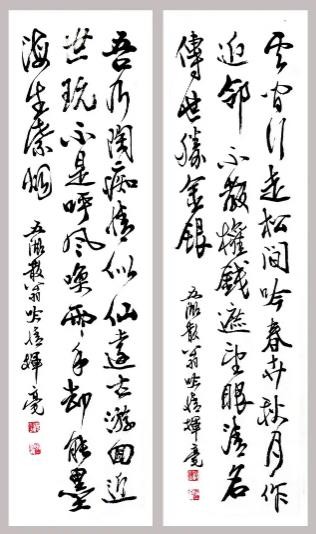 云行走松間吟春卉秋月作
近邻不教權錢遮望眼清名
傳世勝金銀
五湖散翁吟詩揮毫
吾乃陶痴情似仙遠古游回近
世玩不是呼風喚雨手却能墨
海生紫烟
五湖散翁吟詩揮毫